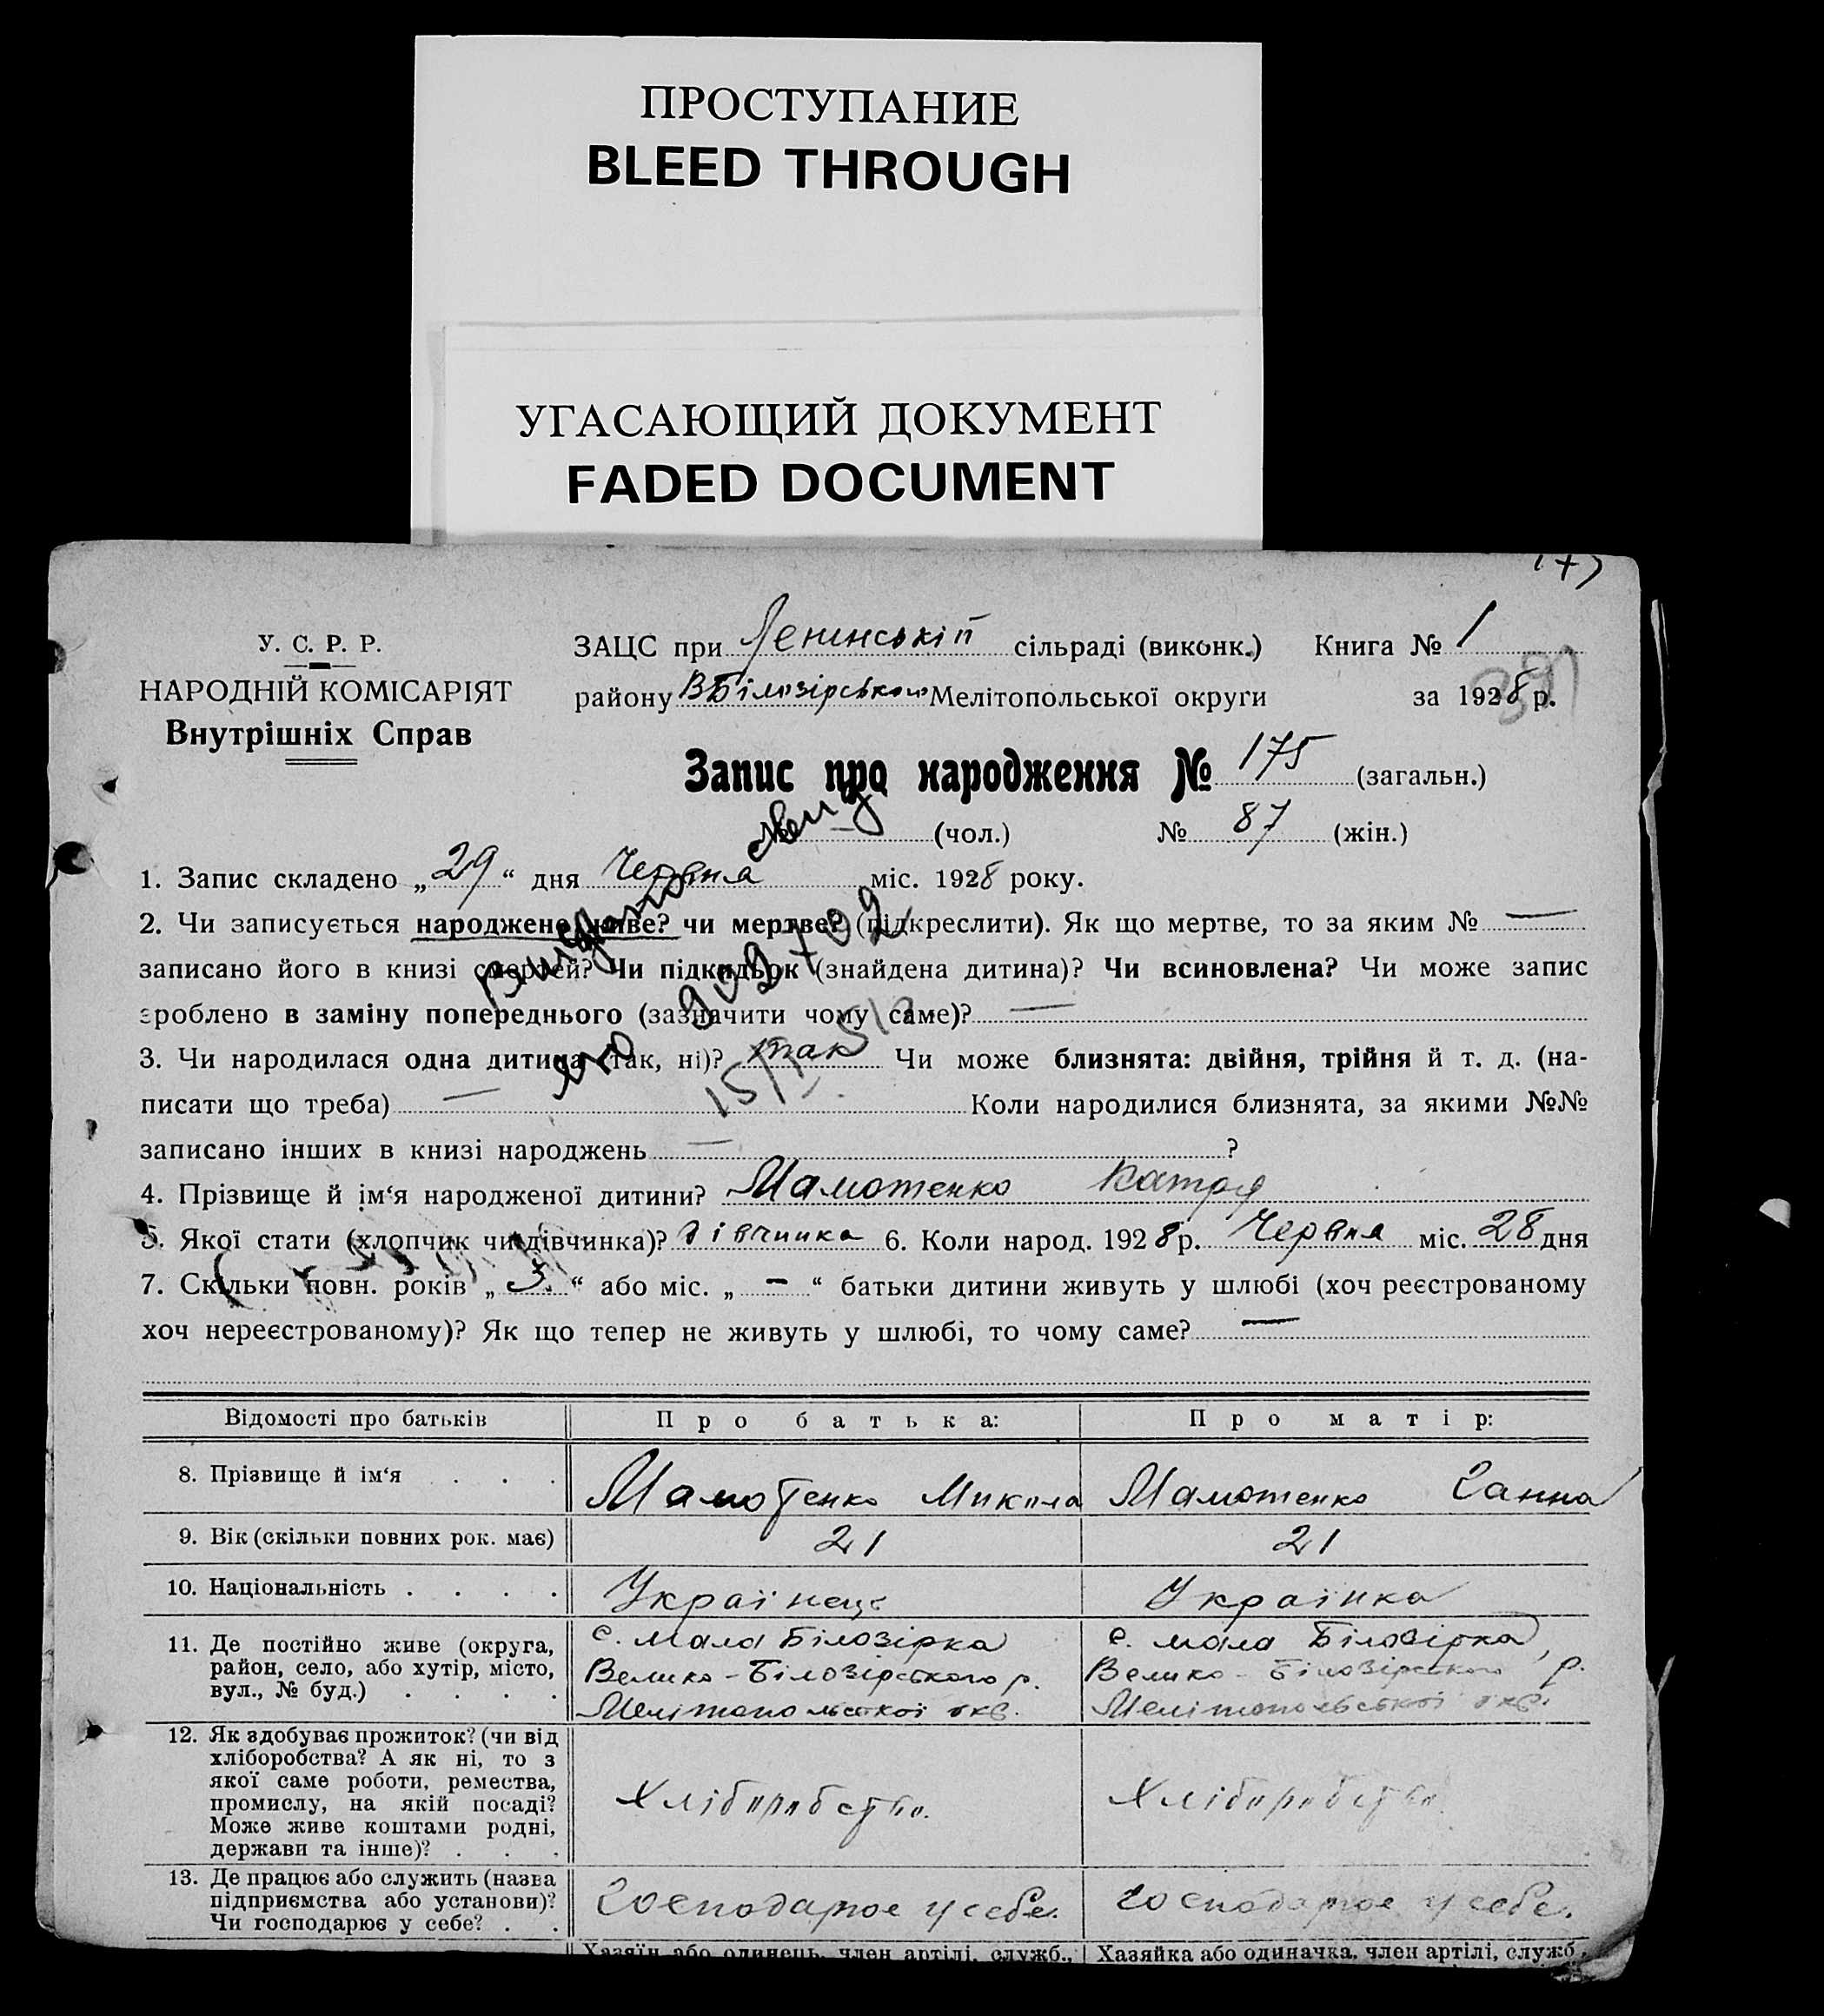 ПРОСТУПАНИЕ
BLEED THROUGH
УГАСАЮЩИЙ ДОКУМЕНТ
FADED DOCUMENT
У. С. Р. Р.
НАРОДНІЙ КОМІСАРІЯТ
Внутрішніх Справ
ЗАЦС при Ленинській сільраді (виконк.) Книга № 1
району ВБілозірського Мелітопольської округи за 1928 р.
Запис про народження № 175 (загальн.)
№ — (чол.) № 87 (жін.)
1. Запис складено „29“ дня Червня міс. 1928 року.
2. Чи записується народжене живе? чи мертве? (підкреслити). Як що мертве, то за яким № —
записано його в книзі смертей? Чи підкидьок (знайдена дитина)? Чи всиновлена? Чи може запис
зроблено в заміну попереднього (зазначити чому саме)? —
3. Чи народилася одна дитина (так, ні)? так Чи може близнята: двійня, трійня й т. д. (на-
писати що треба) — Коли народилися близнята, за якими №№
записано інших в книзі народжень — ?
4. Прізвище й ім‘я народженої дитини? Мамотенко Катря
5. Якої стати (хлопчик чи дівчинка)? дівчинка 6. Коли народ. 1928 р. Червня міс. 28 дня
7. Скільки повн. років „3.“ або міс. „—“ батьки дитини живуть у шлюбі (хоч реєстрованому
хоч нереєстрованому)? Як що тепер не живуть у шлюбі, то чому саме? —
Видано
Відомості про батьків Про батька: Про матір:
8. Прізвище й ім‘я . . . Мамотенко Микола Мамотенко Ганна
9. Вік (скільки повних рок. має) 21 21
10. Національність . . . . Українець Українка
11. Де постійно живе (округа, район, село, або хутір, місто, вул., № буд.) . . . .
с. мала Білозірка
Велико-Білозірського р.
Мелітопольської окр.
с. мала Білозірка,
Велико-Білозірського р.
Мелітопольської окр.
12. Як здобуває прожиток? (чи від
хліборобства? А як ні, то з
якої саме роботи, ремества,
промислу, на якій посаді?
Може живе коштами родні,
держави та інше)? . . .
Хліборобство.
Хліборобство.
13. Де працює або служить (назва
підприємства або установи)?
Чи господарює у себе? . .
Господарює у себе.
Господарює у себе.
Хазяїн або одинець, член артілі, служб., Хазяйка або одиначка, член артілі, служб.